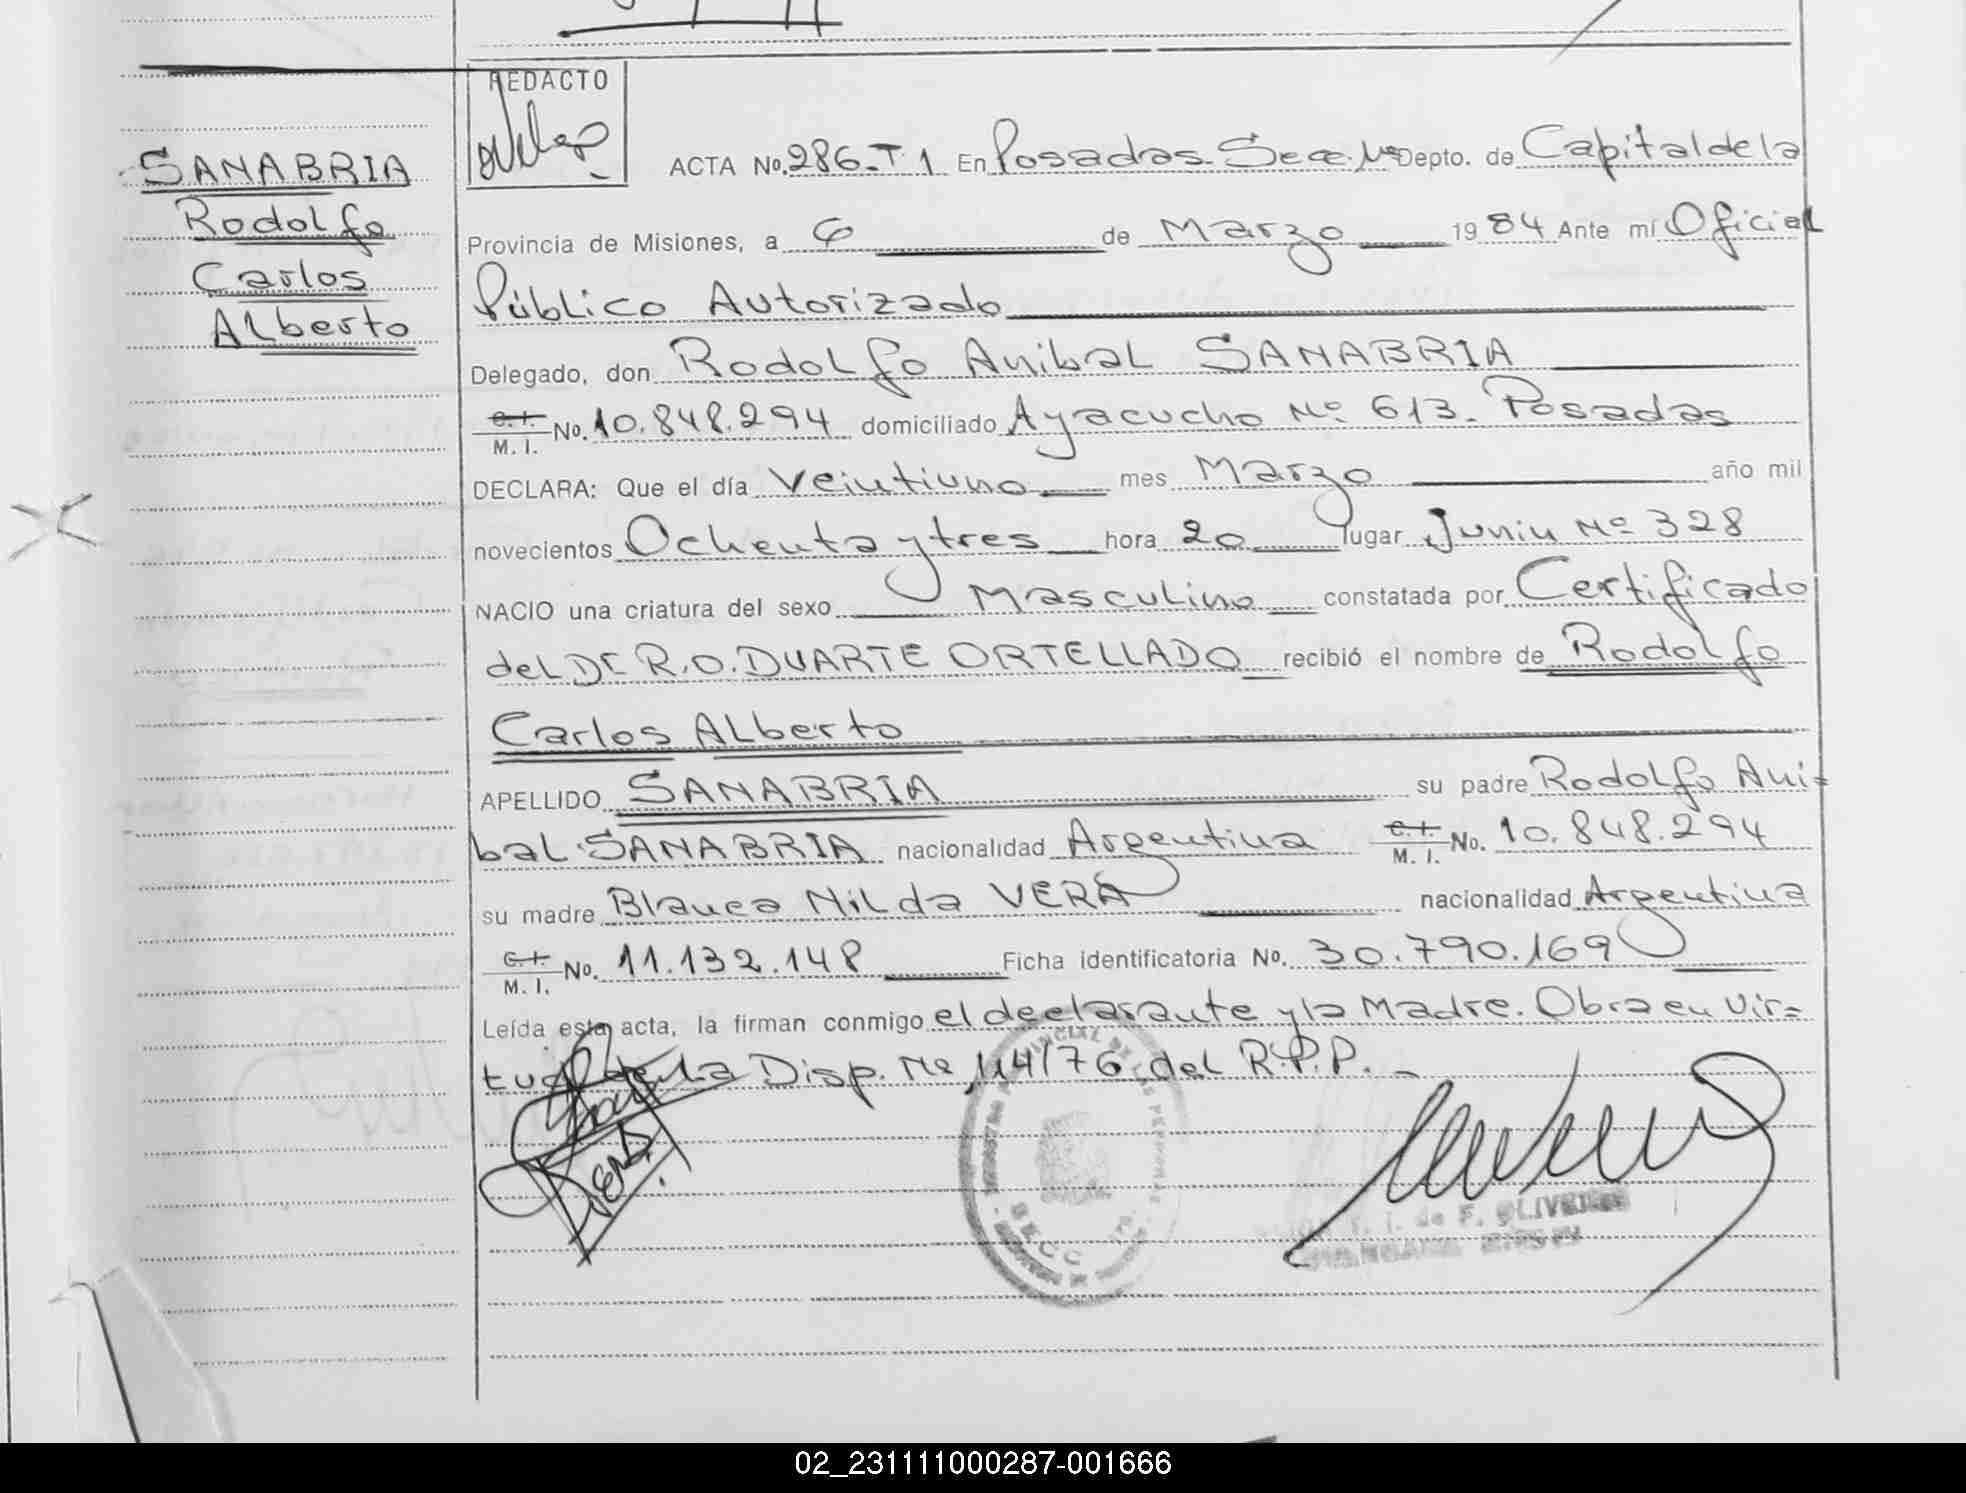 SANABRIA
Rodolfo
Carlos
Alberto
REDACTO
ACTA No. 286-T.1 En Posadas Secc. 1ª Depto. de Capital de la
Provincia de Misiones, a 6 de Marzo 1984 Ante mí Oficial
Público Autorizado
Delegado, don Rodolfo Anibal SANABRIA
C.I. M.I. No. 10.848.294 domiciliado Ayacucho Nº 613. Posadas
DECLARA: Que el día Veintiuno mes Marzo año mil
novecientos Ochenta y tres hora 20 lugar Junin Nº 328
NACIO una criatura del sexo Masculino constatada por Certificado
del Dr R.O. DUARTE ORTELLADO recibió el nombre de Rodolfo
Carlos Alberto
APELLIDO SANABRIA su padre Rodolfo Ani=
bal SANABRIA nacionalidad Argentina C.I. M.I. No. 10.848.294
su madre Blanca Nilda VERA nacionalidad Argentina
C.I. M.I. No. 11.132.148 Ficha identificatoria No. 30.790.169
Leída esta acta, la firman conmigo el declarante y la Madre. Obra en vir=
tud de la Disp. Nº 114/76 del R.P.P.
SECC
de F. OLIVEIRA
02_231111000287-001666